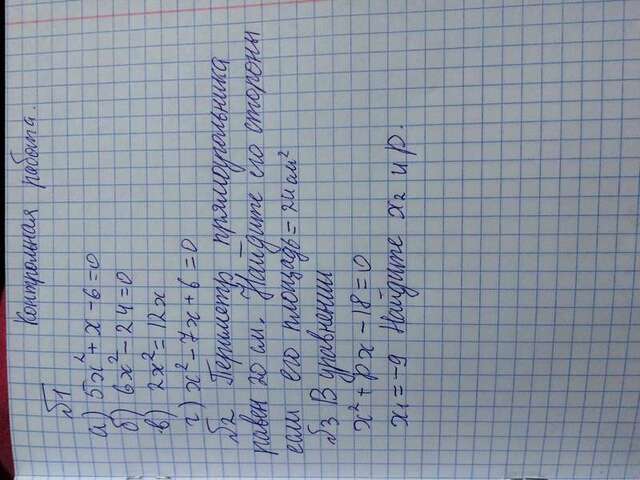 Контрольная работа.
№1
а) 5x² + x - 6 = 0
б) 6x² - 24 = 0
в) 2x² = 12x
г) x² - 7x + 6 = 0
№2 Периметр прямоугольника
равен 20 см. Найдите его стороны
если его площадь = 24 см²
№3 В уравнении
x² + px - 18 = 0
x₁ = -9 Найдите x₂ и p.